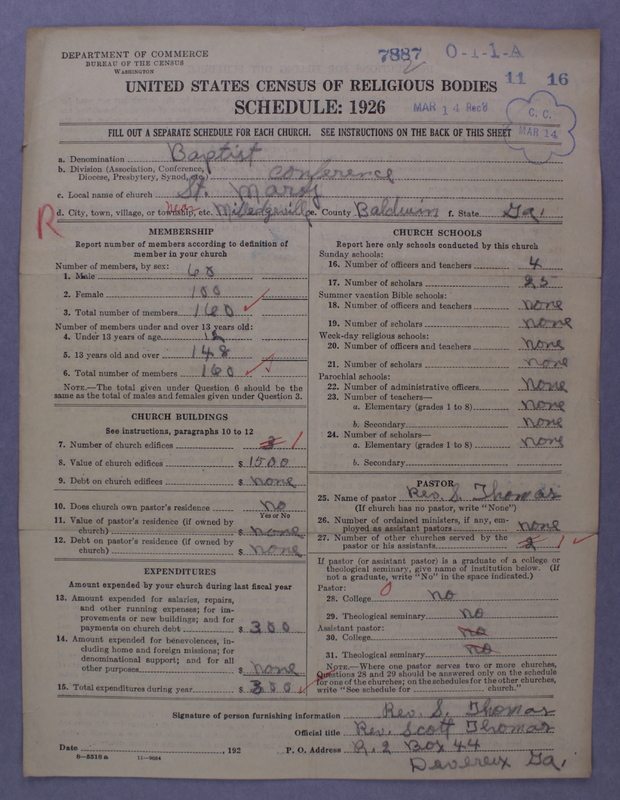 DEPARTMENT OF COMMERCE
BUREAU OF THE CENSUS
WASHINGTON
7887 O-1-1-A
11 16
UNITED STATES CENSUS OF RELIGIOUS BODIES
SCHEDULE: 1926
MAR 14 Rec'd
C. C.
MAR 14
FILL OUT A SEPARATE SCHEDULE FOR EACH CHURCH. SEE INSTRUCTIONS ON THE BACK OF THIS SHEET
a. Denomination Baptist
b. Division (Association, Conference, Diocese, Presbytery, Synod, etc.) Conference
c. Local name of church St. Mary
R
d. City, town, village, or township, etc. near Milledgeville e. County Baldwin f. State Ga.
MEMBERSHIP
Report number of members according to definition of
member in your church
Number of members, by sex:
1. Male 60
2. Female 100
3. Total number of members 160
Number of members under and over 13 years old:
4. Under 13 years of age 12
5. 13 years old and over 148
6. Total number of members 160
NOTE.—The total given under Question 6 should be the
same as the total of males and females given under Question 3.
CHURCH BUILDINGS
See instructions, paragraphs 10 to 12
7. Number of church edifices 1
8. Value of church edifices $ 1500
9. Debt on church edifices $ none
10. Does church own pastor's residence no
Yes or No
11. Value of pastor's residence (if owned by
church) $ none
12. Debt on pastor's residence (if owned by
church) $ none
EXPENDITURES
Amount expended by your church during last fiscal year
13. Amount expended for salaries, repairs,
and other running expenses; for im-
provements or new buildings; and for
payments on church debt $ 300
14. Amount expended for benevolences, in-
cluding home and foreign missions; for
denominational support; and for all
other purposes $ none
15. Total expenditures during year $ 300
CHURCH SCHOOLS
Report here only schools conducted by this church
Sunday schools:
16. Number of officers and teachers 4
17. Number of scholars 25
Summer vacation Bible schools:
18. Number of officers and teachers none
19. Number of scholars none
Week-day religious schools:
20. Number of officers and teachers none
21. Number of scholars none
Parochial schools:
22. Number of administrative officers none
23. Number of teachers—
a. Elementary (grades 1 to 8) none
b. Secondary none
24. Number of scholars—
a. Elementary (grades 1 to 8) none
b. Secondary
PASTOR
25. Name of pastor Rev. S. Thomas
(If church has no pastor, write "None")
26. Number of ordained ministers, if any, em-
ployed as assistant pastors none
27. Number of other churches served by the
pastor or his assistants 2 1
If pastor (or assistant pastor) is a graduate of a college or
theological seminary, give name of institution below. (If
not a graduate, write "No" in the space indicated.)
Pastor: 0
28. College no
29. Theological seminary no
Assistant pastor:
30. College no
31. Theological seminary no
NOTE.—Where one pastor serves two or more churches,
Questions 28 and 29 should be answered only on the schedule
for one of the churches; on the schedules for the other churches,
write "See schedule for church."
Signature of person furnishing information Rev. S. Thomas
Official title Rev. Scott Thomas
Date , 192 P. O. Address R. 2 Box 44
8—5518 a 11—9084
Devereux Ga.